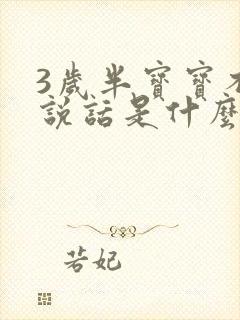 3歲半寶寶不
說話是什麼
若妃